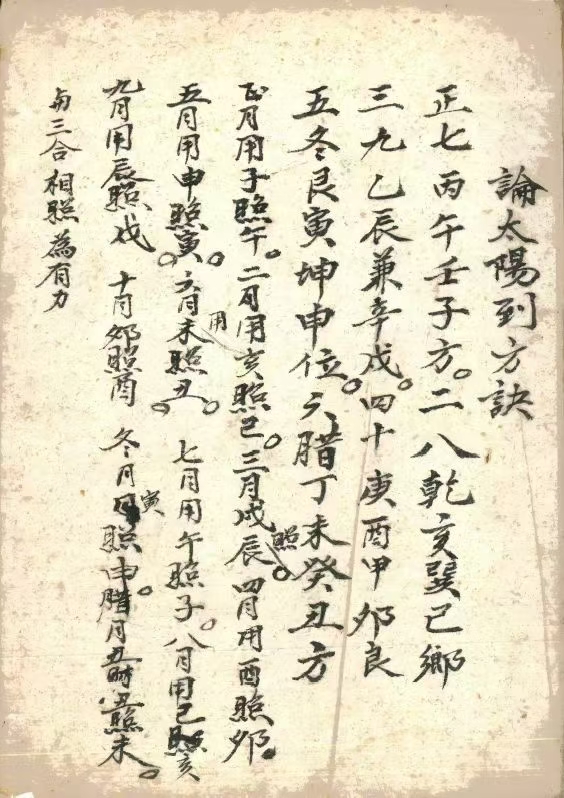 論太陽到方訣
正七丙午壬子方。二八乾亥巽巳鄉
三九乙辰兼辛戌。四十庚酉甲卯良
五冬艮寅坤申位。六腊丁未癸丑方
正月用子照午。二月用亥照巳。三月戌照辰。四月用酉照卯。
五月用申照寅。六月用未照丑。七月用午照子。八月用巳照亥
九月用辰照戌 十月卯照酉 冬月寅照申。腊月丑時丑照未。
与三合相照為有力